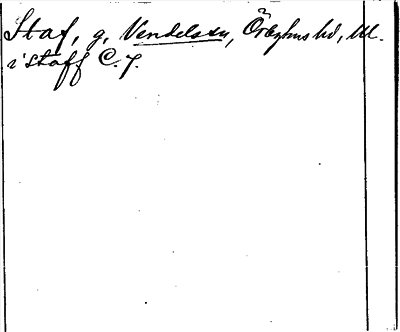 Staf, g, Vendels sn, Örbyhus hd, Ul.
i staff C. J.